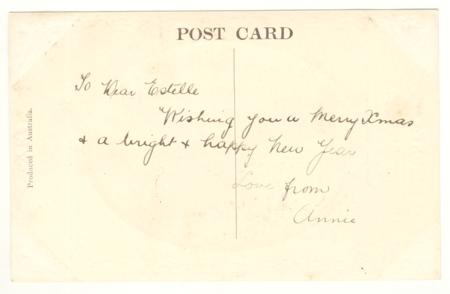 POST CARD
Produced in Australia.
To Dear Estelle
Wishing you a Merry Xmas
& a bright & happy New Year
Love from
Annie